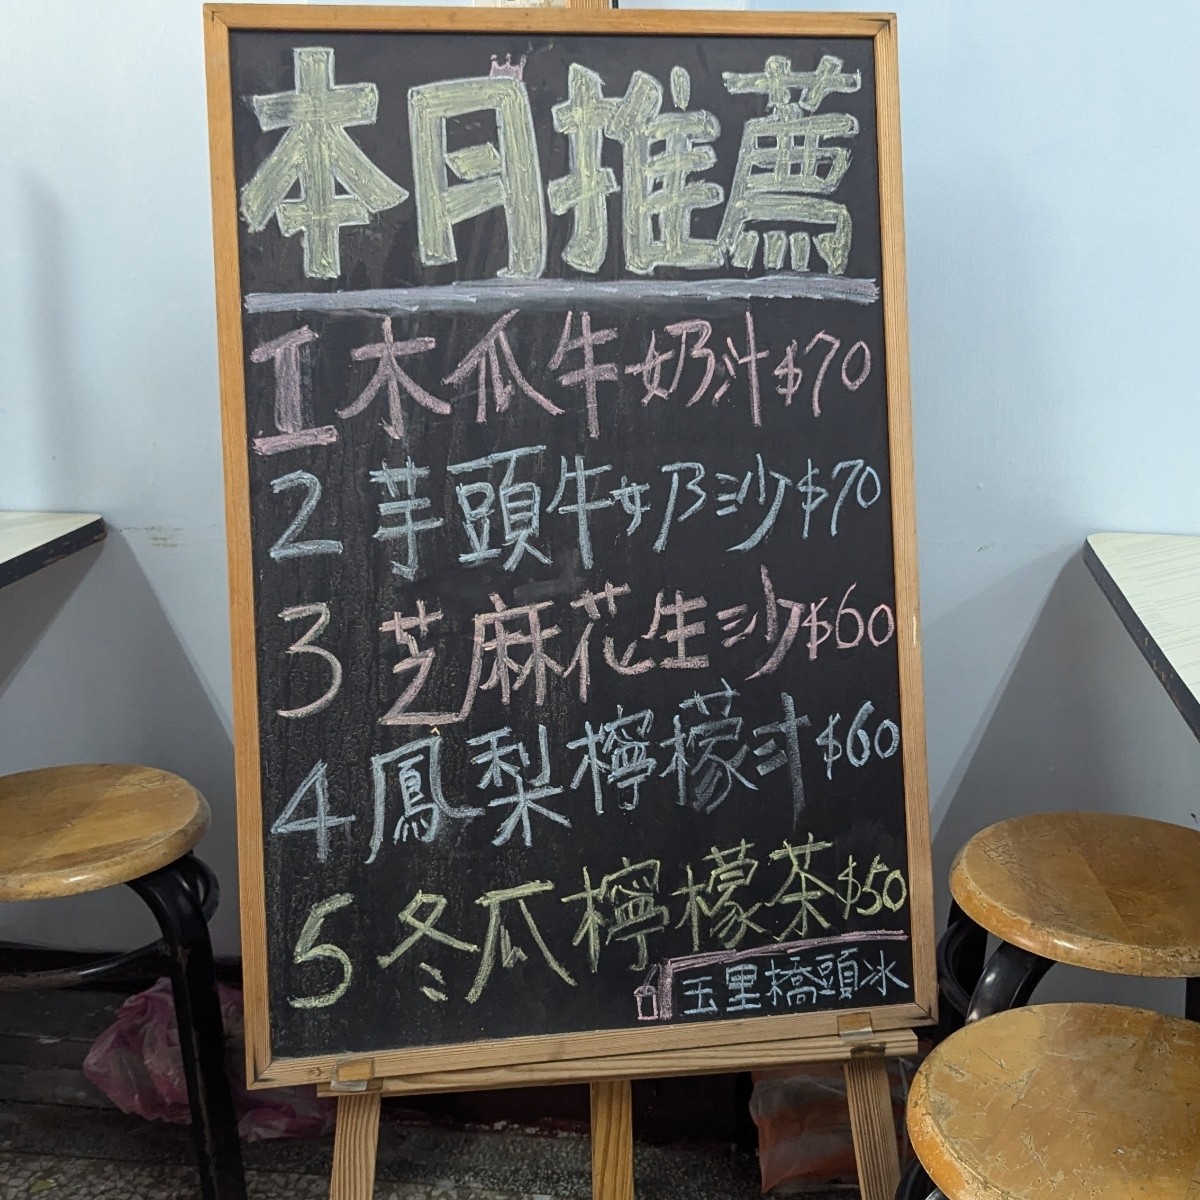 本月推薦
1木瓜牛奶汁$70
2芋頭牛奶沙$70
3芝麻花生沙$60
4鳳梨檸檬汁$60
5冬瓜檸檬茶$50
玉里橋頭冰